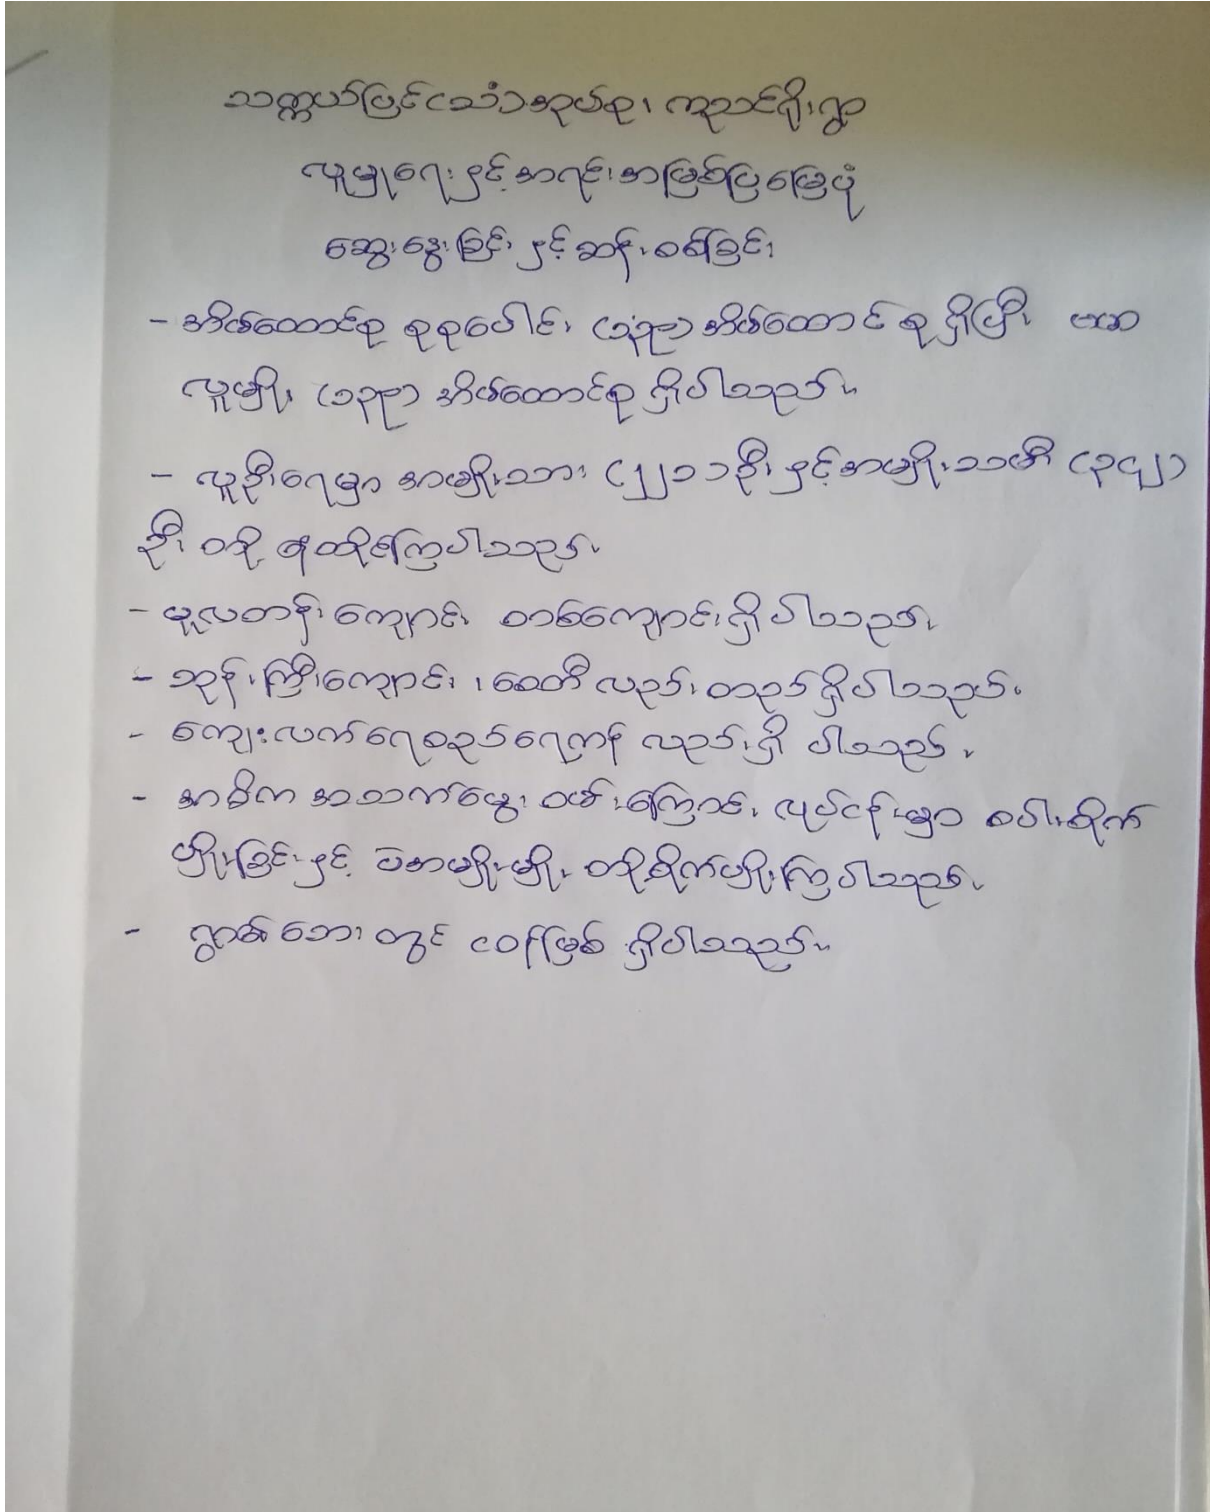 သက္ကယ်ပြင်(သံ)အုပ်စု၊ ကူသင်ရိုးရွာ
လူမှုရေးနှင့်အရင်းအမြစ်ပြမြေပုံ
ဆွေးနွေးခြင်းနှင့်ဆန်းစစ်ခြင်း
- အိမ်ထောင်စု စုစုပေါင်း (၁၃၉) အိမ်ထောင်စုရှိပြီး ဗမာ
လူမျိုး (၁၃၉) အိမ်ထောင်စု ရှိပါသည်။
- လူဦးရေမှာ အမျိုးသား (၂၂၁)ဦး နှင့်အမျိုးသမီး (၃၄၂)
ဦး တို့ နေထိုင်ကြပါသည်။
- မူလတန်းကျောင်း တစ်ကျောင်းရှိပါသည်။
- ဘုန်းကြီးကျောင်း ၊ စေတီ လည်း တည်ရှိပါသည်။
- ကျေးလက်ရေစည်ရေကန် လည်းရှိ ပါသည်။
- အဓိက အသက်မွေး ဝမ်းကြောင်း လုပ်ငန်းမှာ စပါးစိုက်
ပျိုးခြင်းနှင့် ပဲအမျိုးမျိုး တို့စိုက်ပျိုးကြပါသည်။
- ရွာ၏ဘေး တွင် ငဝန်မြစ် ရှိပါသည်။